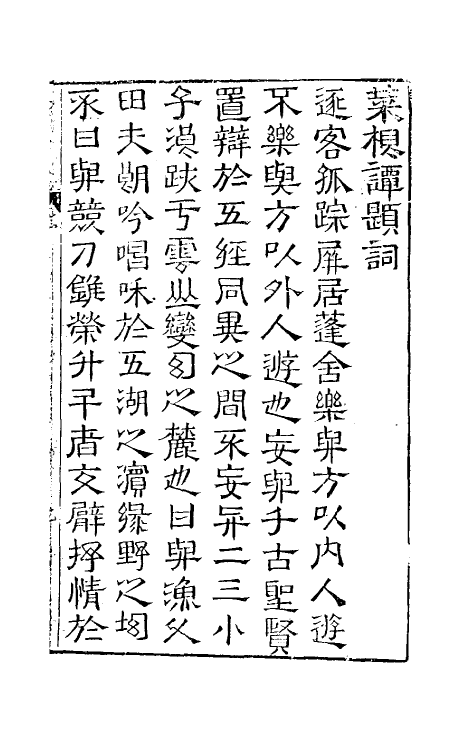 菜根譚題詞
逐客孤踪屏居蓬舍樂與方以内人遊
不樂與方以外人遊也妄與千古聖賢
置辯於五經同異之間不妄與二三小
子浪跡于雲山變幻之麓也日與漁父
田夫朗吟唱和於五湖之濱綠野之坳
不日與競刀錐榮升斗者交臂抒情於